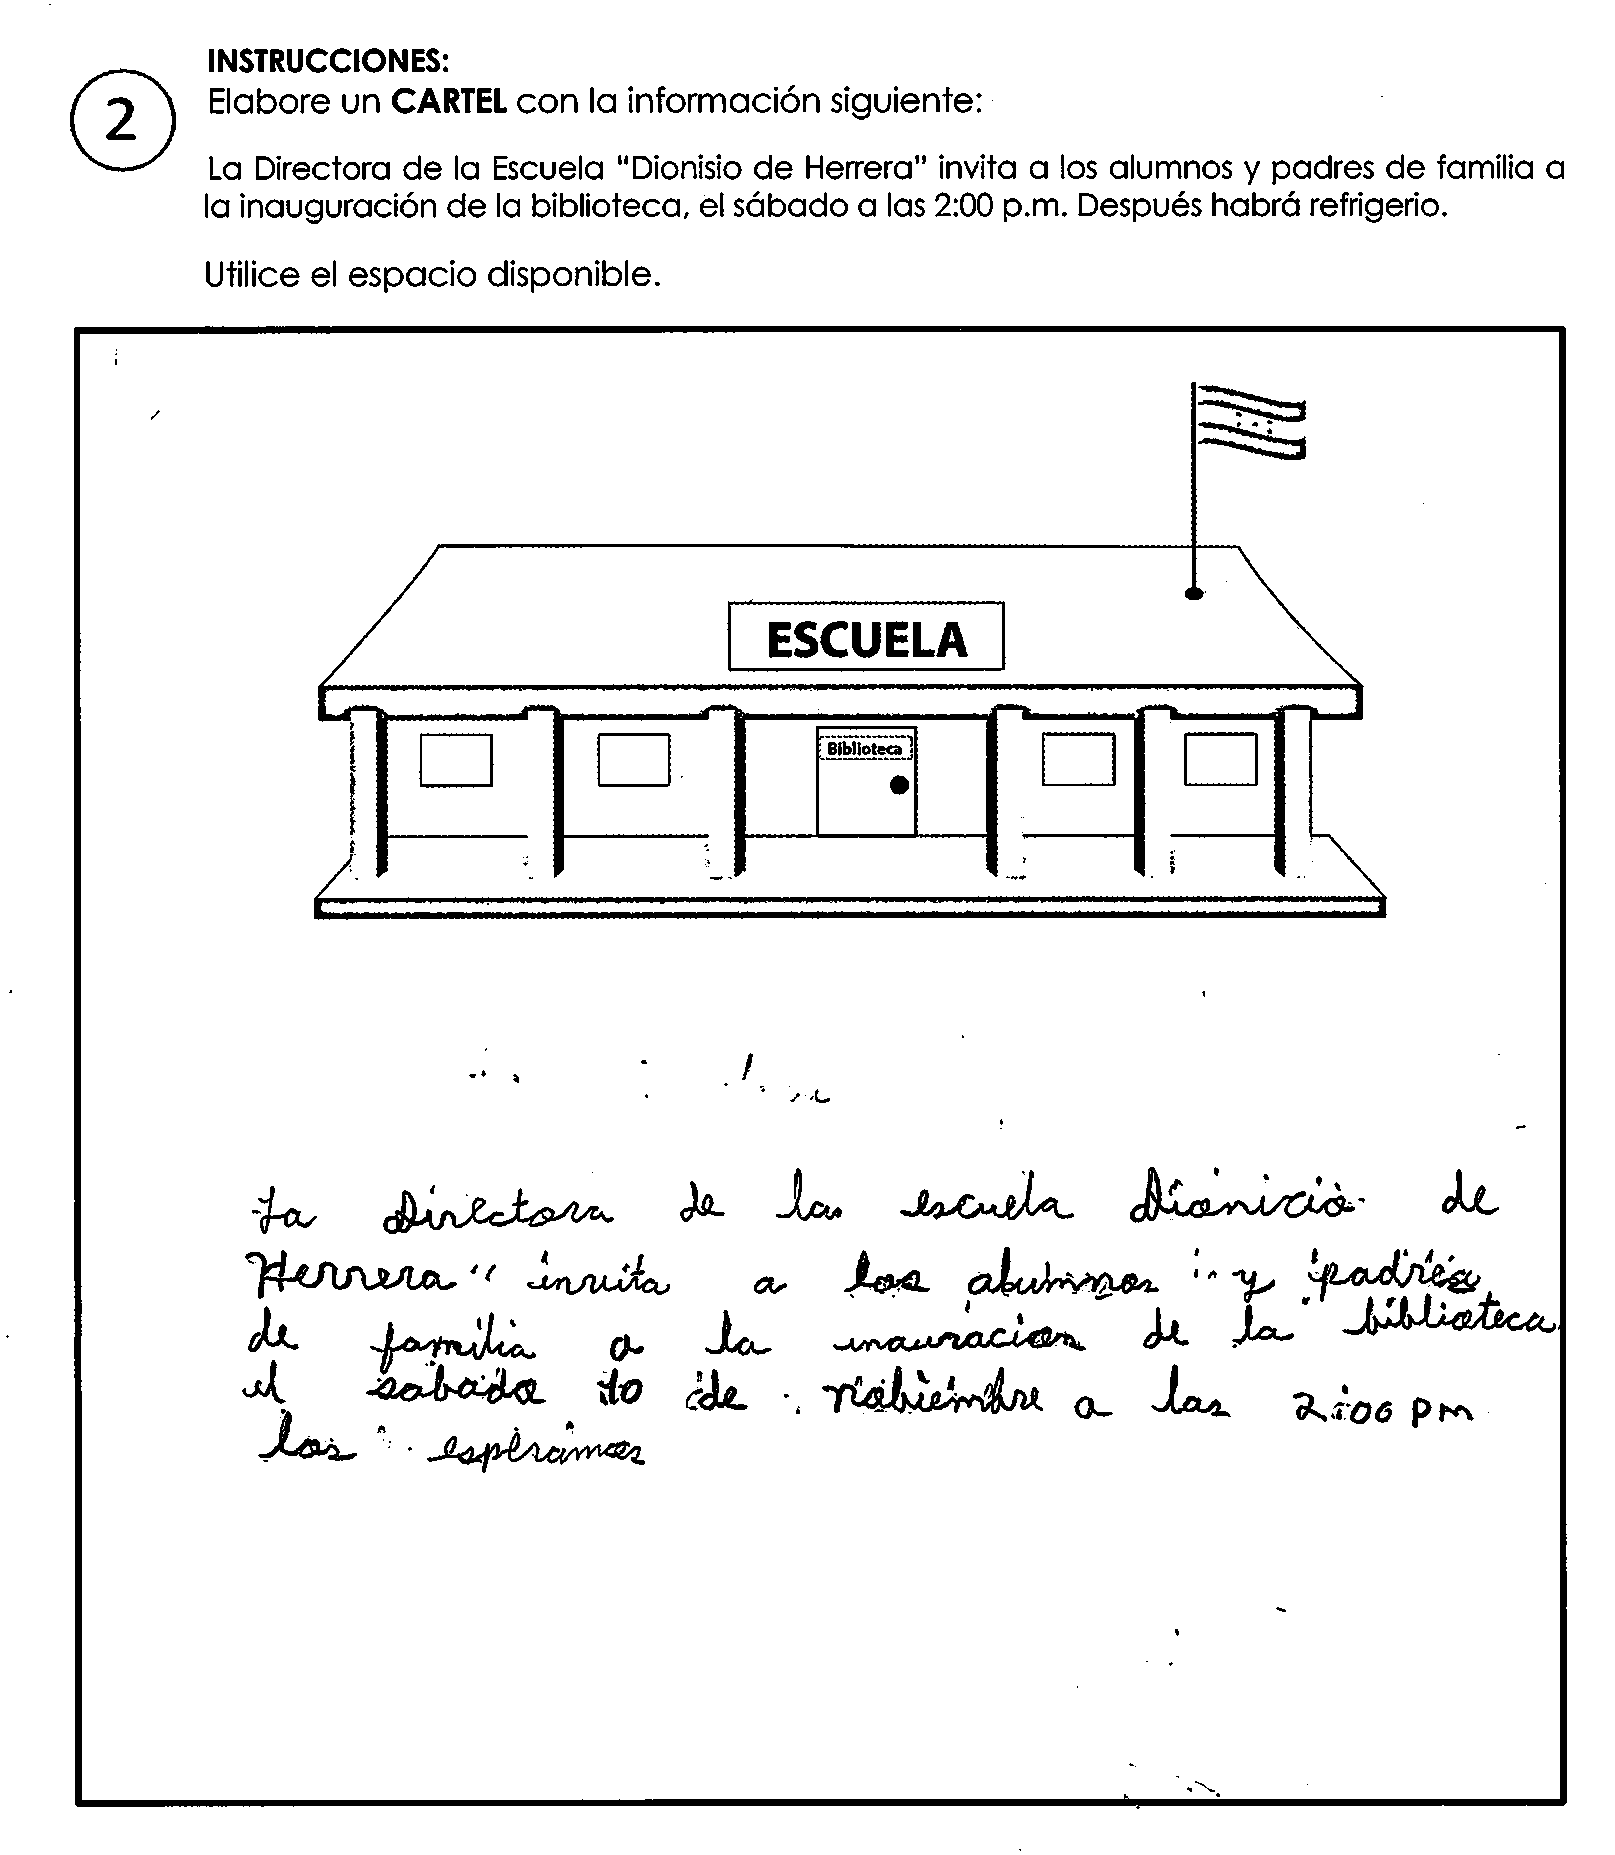 INSTRUCCIONES:
2
Elabore un CARTEL con la información siguiente:
La Directora de la Escuela "Dionisio de Herrera" invita a los alumnos y padres de familia a
la inauguración de la biblioteca, el sábado a las 2:00 p.m. Después habrá refrigerio.
Utilice el espacio disponible.
ESCUELA
Biblioteca
La Directora de la escuela Dionicio de
Herrera" invita a los alumnos y padres
de familia a la inauracion de la biblioteca
el sabado 10 de nobiembre a las 2:00 pm
los esperamos